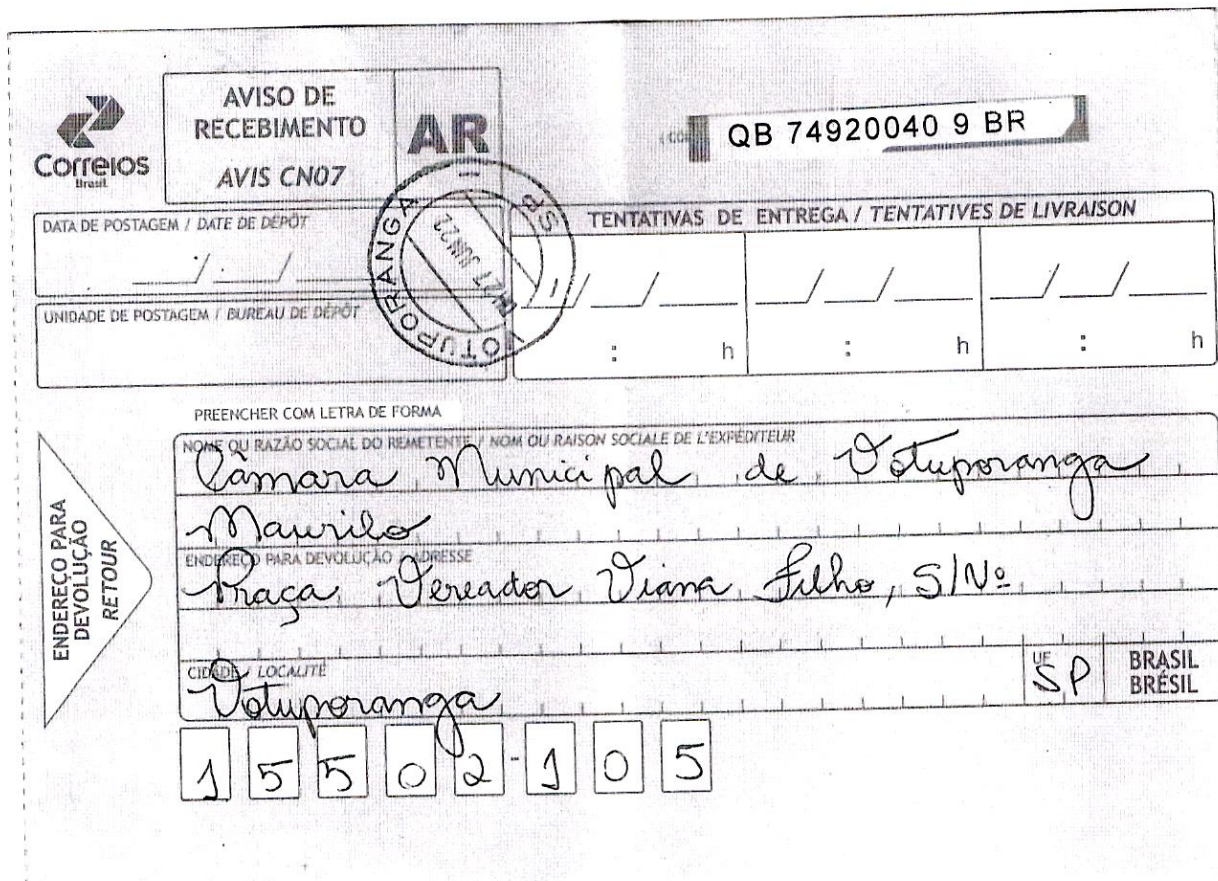 Correios
Brasil
AVISO DE
RECEBIMENTO
AVIS CN07
AR
QB 74920040 9 BR
DATA DE POSTAGEM / DATE DE DÉPÔT
UNIDADE DE POSTAGEM / BUREAU DE DÉPÔT
VOTUPORANGA SP
27 JUN 22
TENTATIVAS DE ENTREGA / TENTATIVES DE LIVRAISON
: h : h : h
PREENCHER COM LETRA DE FORMA
ENDEREÇO PARA
DEVOLUÇÃO
RETOUR
NOME OU RAZÃO SOCIAL DO REMETENTE / NOM OU RAISON SOCIALE DE L'EXPÉDITEUR
Câmara Municipal de Votuporanga
Maurilo
ENDEREÇO PARA DEVOLUÇÃO / ADRESSE
Praça Vereador Viana Filho, S/Nº
CIDADE / LOCALITÉ
Votuporanga
UF
SP
BRASIL
BRÉSIL
15502-105